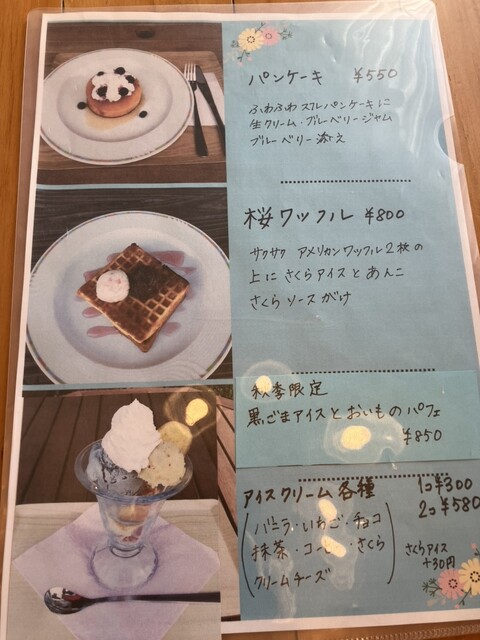 パンケーキ ¥550
ふわふわスフレパンケーキに
生クリーム・ブルーベリージャム
ブルーベリー添え
桜ワッフル ¥800
サクサク アメリカンワッフル2枚の
上に さくらアイスと あんこ
さくらソースがけ
秋季限定
黒ごまアイスとおいものパフェ
¥850
アイスクリーム各種 1コ¥300
2コ¥580
(バニラ・いちご・チョコ
抹茶・コーヒー・さくら
クリームチーズ)
さくらアイス
+30円